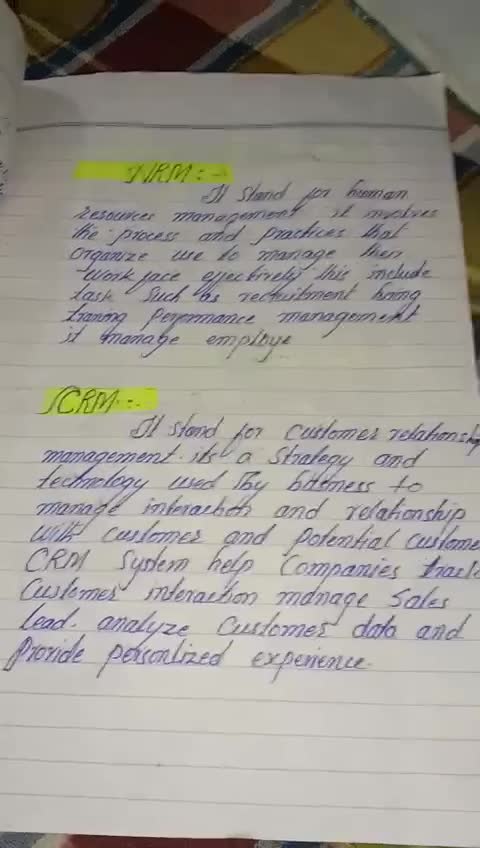 HRM:-
It stand for human
resources management it involves
the process and practices that
organize use to manage then
work face effectively this include
task such as recruitment hiring
traning perfermance management
it manage employe
CRM:-
It stand for customer relationship
management its a strategy and
technology used by business to
manage interaction and relationship
with customer and potential custome
CRM system help companies track
customer interaction manage sales
lead. analyze customer data and
Provide personlized experience.